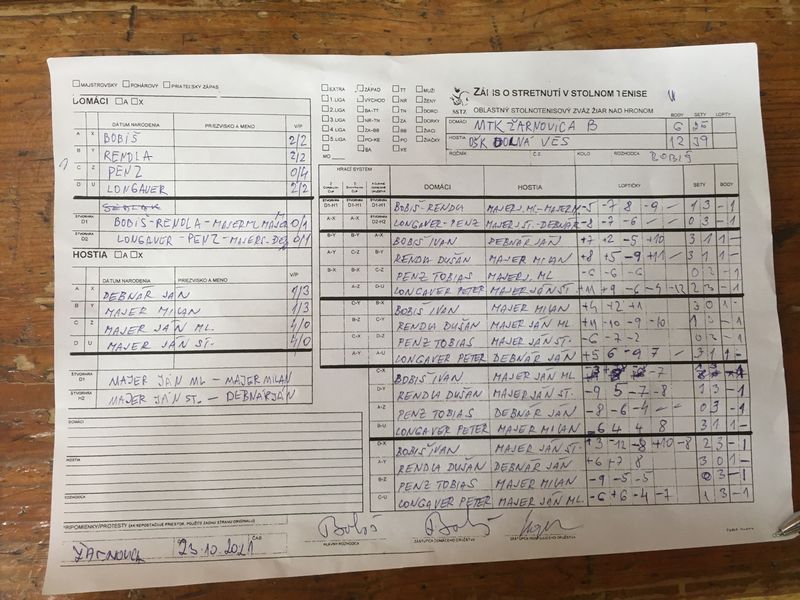 MAJSTROVSKÝ POHÁROVÝ PRIATEĽSKÝ ZÁPAS
DOMÁCI A X
DÁTUM NARODENIA PRIEZVISKO A MENO V/P
A X BOBIŠ 2/2
B Y RENDLA 2/2
C Z PENZ 0/4
D U LONGAVER 2/2
ŠTVORHRA D1 BOBIŠ-RENDLA-MAJER ML. 0/1
ŠTVORHRA D2 LONGAVER-PENZ-MAJER S. 0/1
HOSTIA A X
DÁTUM NARODENIA PRIEZVISKO A MENO V/P
A X DEBNÁR JÁN 1/3
B Y MAJER MILAN 1/3
C Z MAJER JÁN ML. 4/0
D U MAJER JÁN ST. 4/0
ŠTVORHRA D1 MAJER JÁN ML - MAJER MILAN
ŠTVORHRA H2 MAJER JÁN ST. - DEBNÁR JÁN
DOMÁCI
HOSTIA
ROZHODCA
EXTRA ZÁPAD TT MUŽI
1. LIGA VÝCHOD NR ŽENY
2. LIGA BA-TT TN DORCI
3. LIGA NR-TN ZA DORKY
4. LIGA ZA-BB BB ŽIACI
5. LIGA PO-KE PO ŽIAČKY
BA KE
MO
SSTZ
O STRETNUTÍ V STOLNOM TENISE
OBLASTNÝ STOLNOTENISOVÝ ZVÄZ ŽIAR NAD HRONOM
BODY SETY LOPTY
DOMÁCI MTK ŽARNOVICA B 6 25
HOSTIA OŠK DOLNÁ VES 12 39
ROČNÍK Č.Z. KOLO ROZHODCA BOBIŠ
HRACÍ SYSTÉM DOMÁCI HOSTIA LOPTIČKY SETY BODY
BOBIŠ-RENDLA MAJER J. ML.-MAJER M. -5 -7 8 -9 1 3 - 1
LONGAVER-PENZ MAJER J. ST.-DEBNÁR -8 -7 -6 0 3 - 1
BOBIŠ IVAN DEBNÁR JÁN +7 +2 -5 +10 3 1 1 -
RENDLA DUŠAN MAJER MILAN +8 +5 -9 +11 3 1 1 -
PENZ TOBIAS MAJER J. ML -6 -6 -6 0 3 - 1
LONGAVER PETER MAJER JÁN ST. +11 +9 -6 -4 -12 2 3 - 1
BOBIŠ IVAN MAJER MILAN +4 +2 +11 3 0 1 -
RENDLA DUŠAN MAJER JÁN ML +11 -10 -9 -10 1 3 - 1
PENZ TOBIAS MAJER JÁN ST. -6 -7 -2 0 3 - 1
LONGAVER PETER DEBNÁR JÁN +5 6 -9 7 3 1 1 -
BOBIŠ IVAN MAJER JÁN ML
RENDLA DUŠAN MAJER JÁN ST. -9 5 -7 -8 1 3 - 1
PENZ TOBIAS DEBNÁR JÁN -8 -6 -4 0 3 - 1
LONGAVER PETER MAJER MILAN -6 4 4 8 3 1 1 -
BOBIŠ IVAN MAJER JÁN ST. +3 -12 -8 +10 -8 2 3 - 1
RENDLA DUŠAN DEBNÁR JÁN +6 +7 8 3 0 1 -
PENZ TOBIAS MAJER MILAN -9 -5 -5 0 3 - 1
LONGAVER PETER MAJER JÁN ML. -6 +6 -4 -7 1 3 - 1
23.10.2021
HLAVNÝ ROZHODCA
ZÁSTUPCA DOMÁCEHO DRUŽSTVA